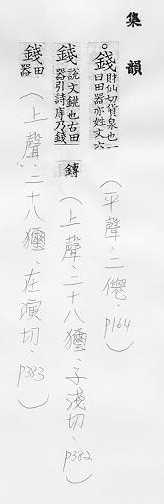 集韻
錢財仙切貨泉也一曰田器亦姓文六
(平聲.二僊.p164)
錢說文銚也古田器引詩庤乃錢鎛
(上聲.二十八獮.子淺切.p382)
錢田器
(上聲.二十八獮.在演切.p383)